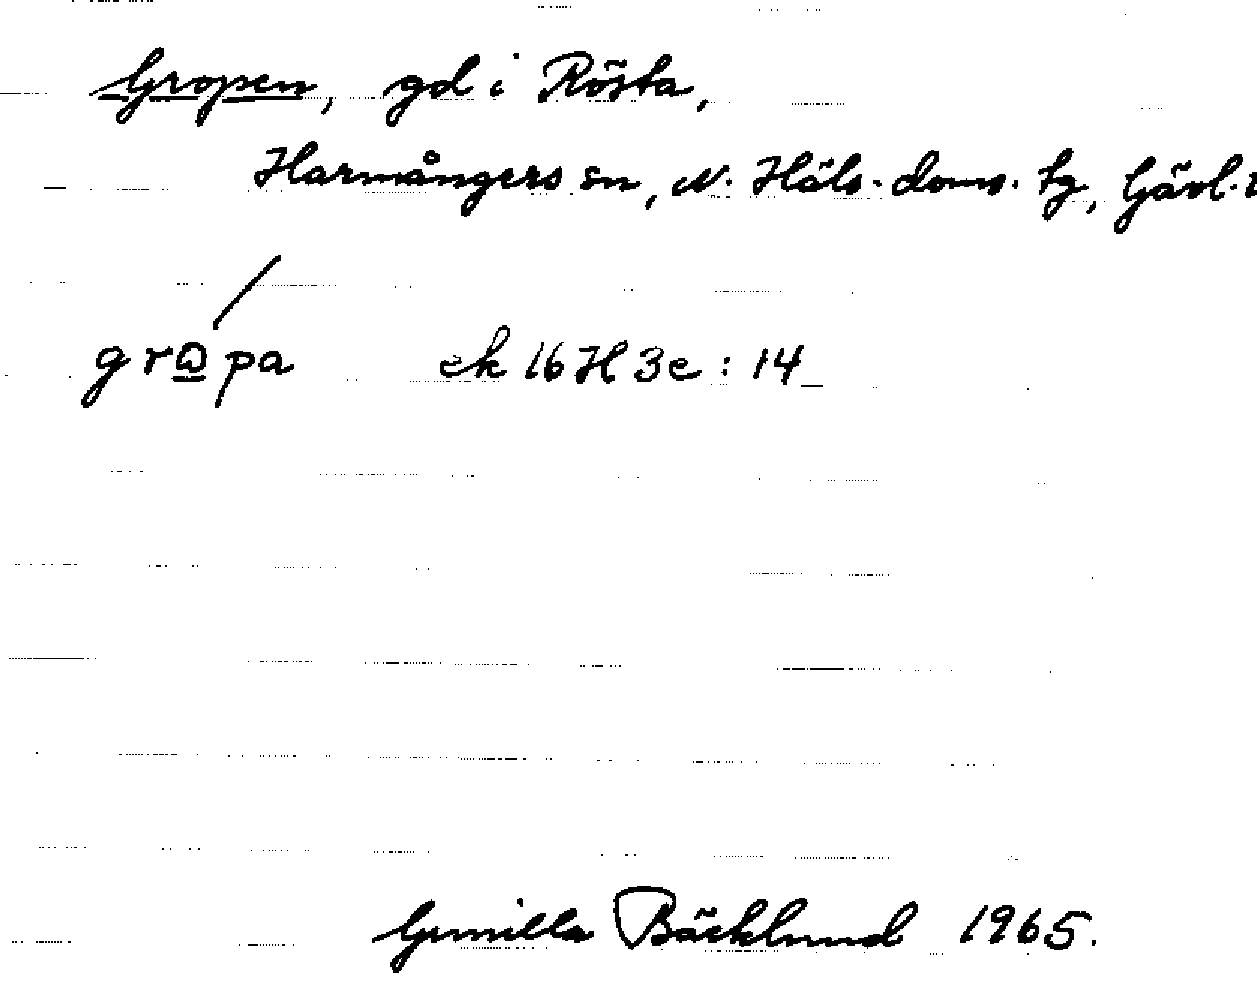 Gropen, gd i Rösta,
Harmångers sn, N. Häls. doms. tg, Gävl. l
grώ̲pa ek 16H 3e : 14
Gunilla Bäcklund 1965.